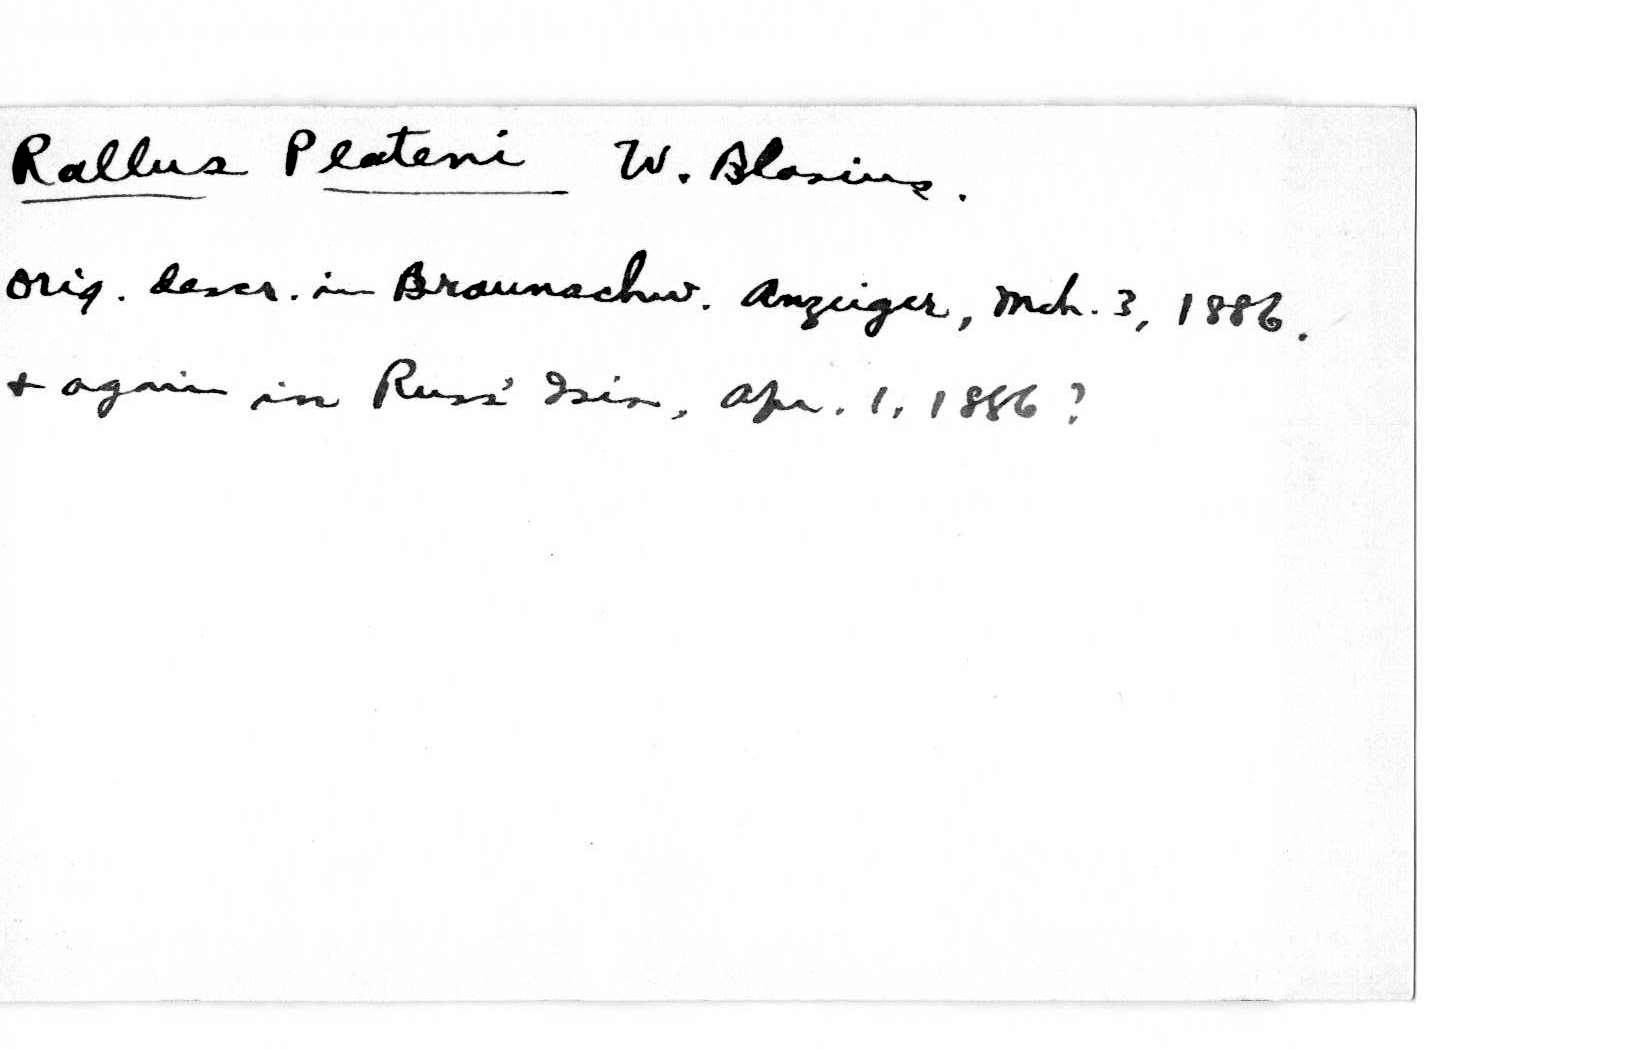 Rallus Plateni W. Blasius.
Orig. descr. in Braunschw. Anzeiger, Mch. 3, 1886.
+ again in Russ' Isis, Apr. 1, 1886?